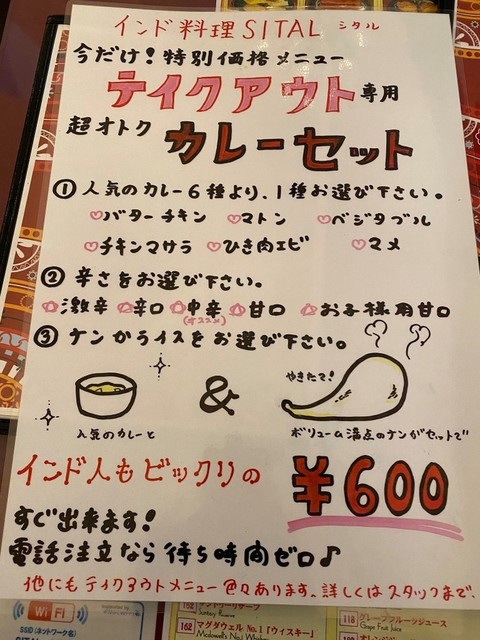 インド料理 SITAL シタル
今だけ!特別価格メニュー
テイクアウト専用
超オトク カレーセット
① 人気のカレー6種より、1種お選び下さい。
♡バターチキン ♡マトン ♡ベジタブル
♡チキンマサラ ♡ひき肉エビ ♡マメ
② 辛さをお選び下さい。
☆激辛 ☆辛口 ☆中辛 ☆甘口 ☆お子様用甘口
(オススメ)
③ ナンかライスをお選び下さい。
やきたて!
&
人気のカレーと
ボリューム満点のナンがセットで
インド人もビックリの
¥600
すぐ出来ます!
電話注文なら待ち時間ゼロ♪
他にもテイクアウトメニュー色々あります。詳しくはスタッフまで。
Wi Fi
SSID (ネットワーク名)
サントリーリザーブ
Suntory Reserve
162 マクダウェル No.1「ウイスキー」
McDowell's No.1 Whiskey
118 グレープフルーツジュース
Grape Fruit Juice